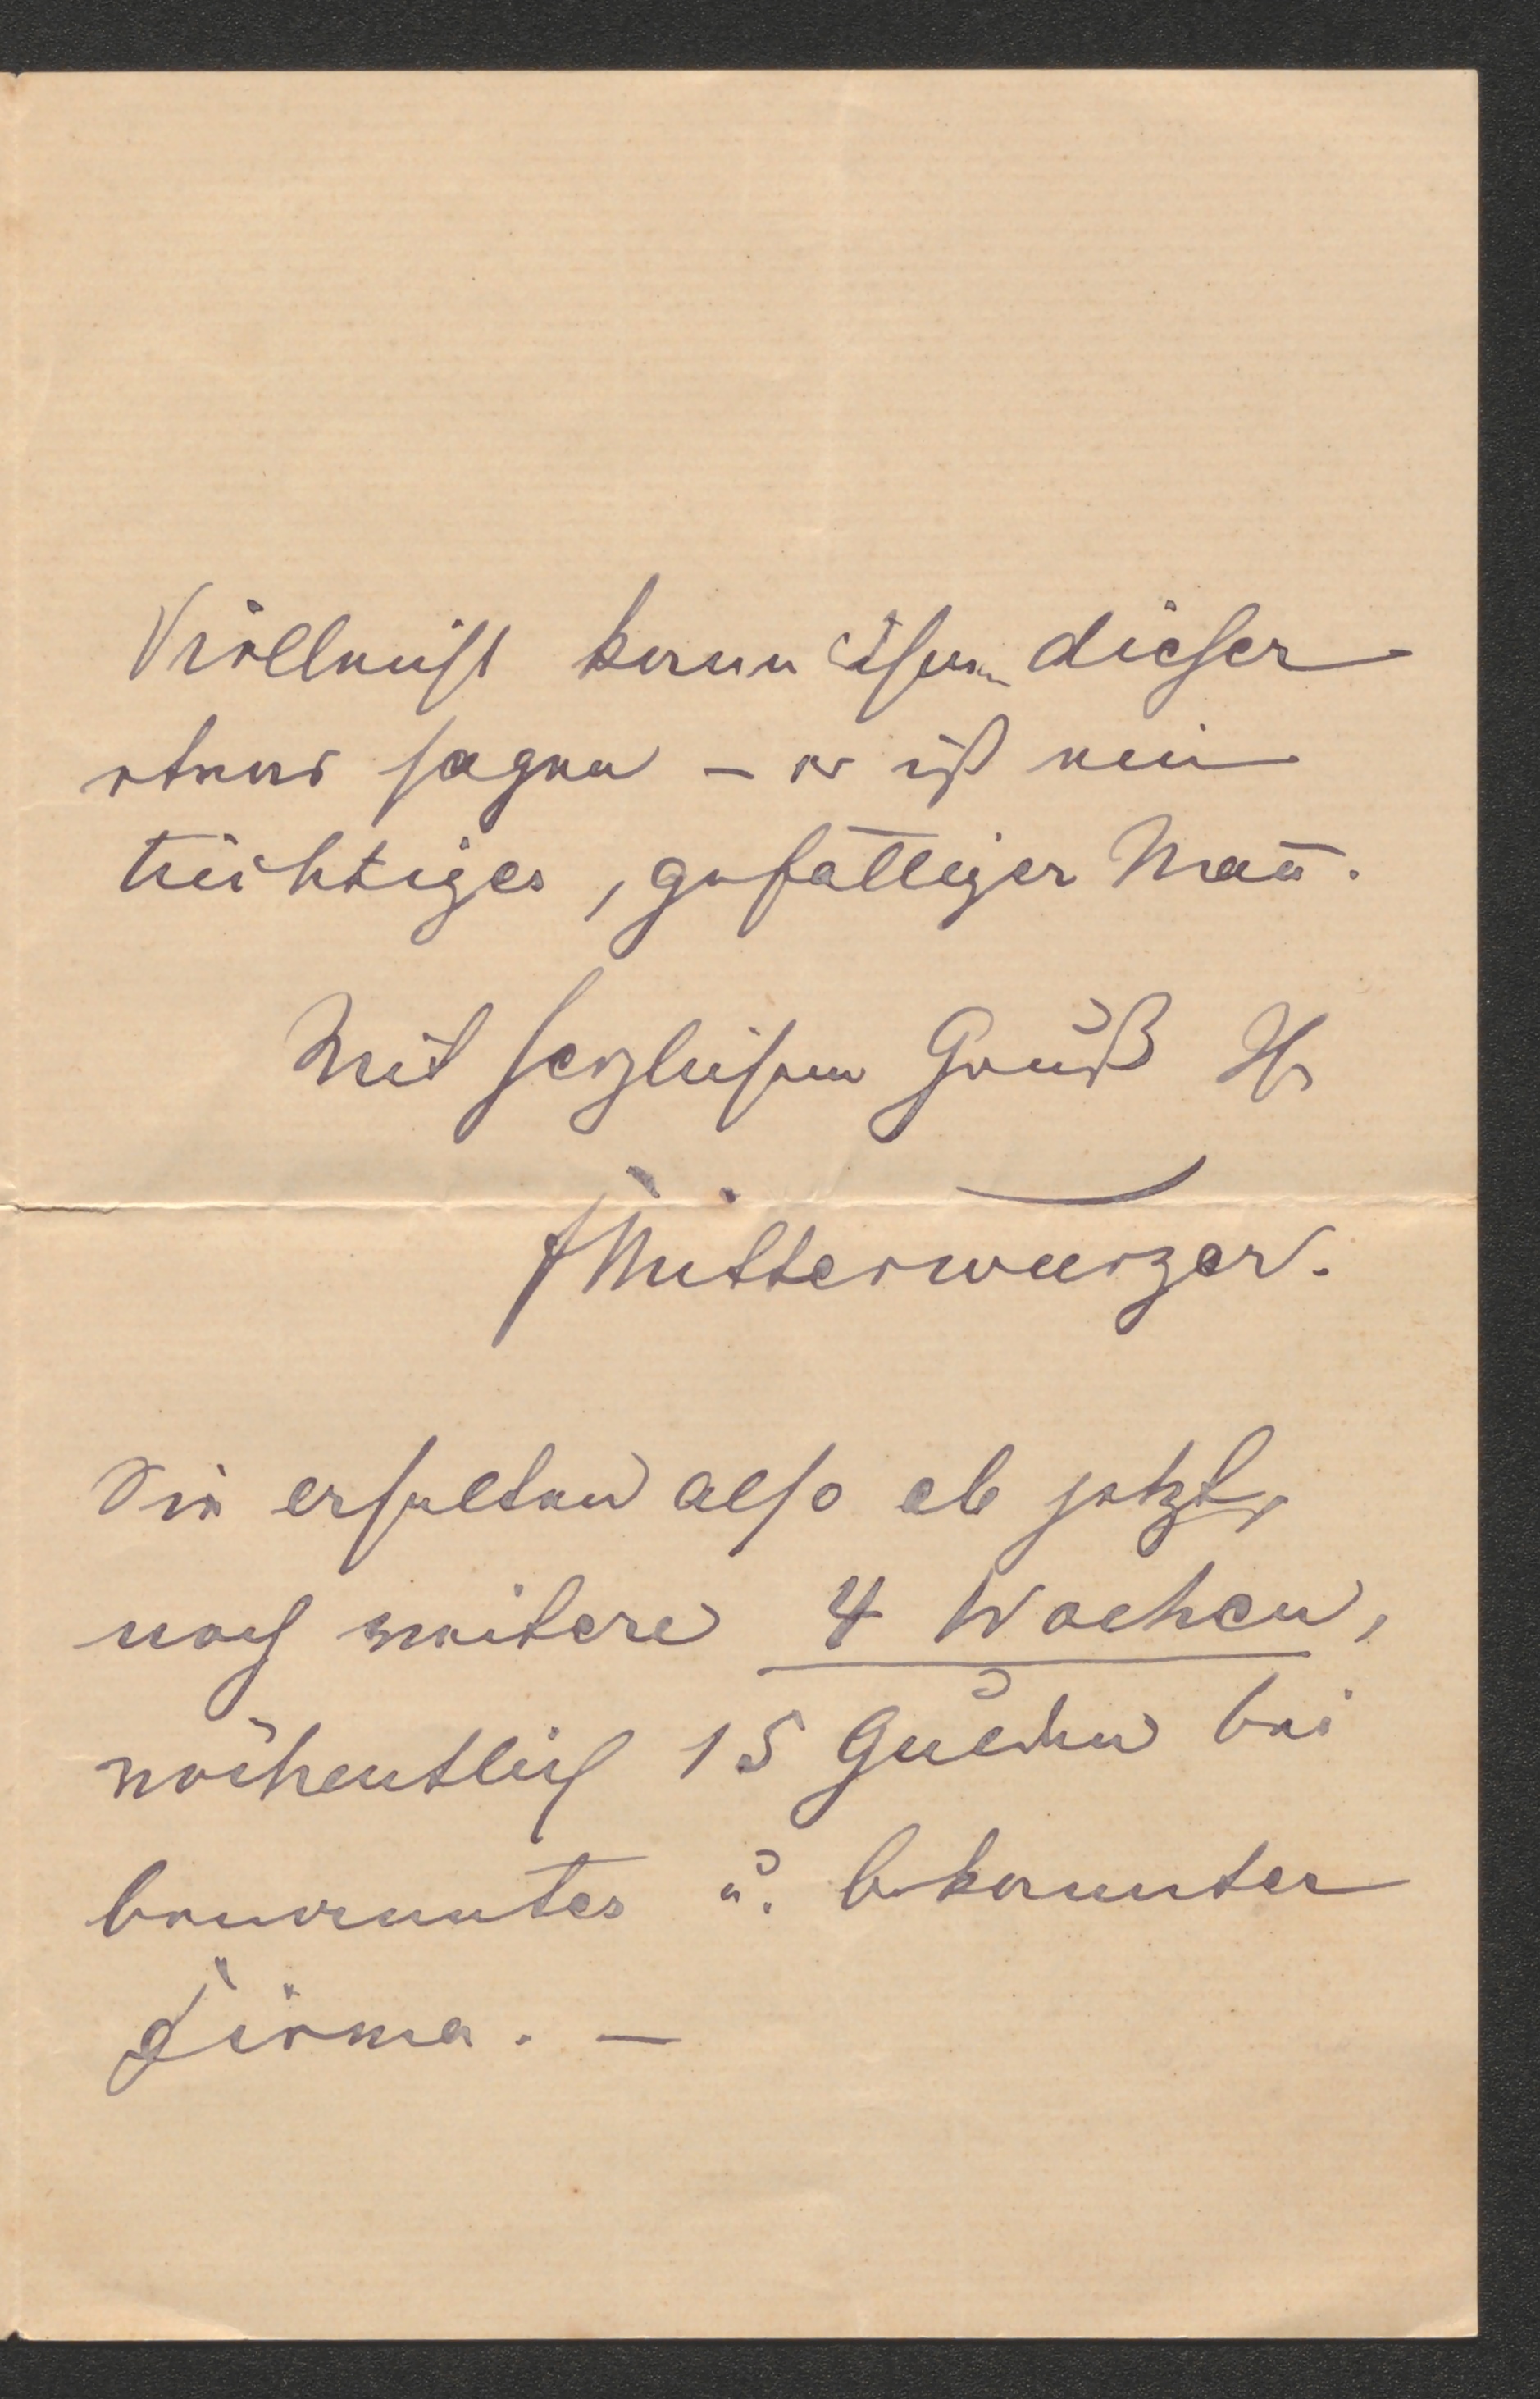 Vielleicht kann Ihnen dieser
etwas sagen – er ist ein
tüchtiger, gefälliger Mañ.
Mit herzlichem Gruß Ihr
FMitterwurzer.
Sie erhalten also ab jetzt,
noch weitere 4 Wochen,
wöchentlich 15 Gulden bei
benannter u. bekannter
Firma. –